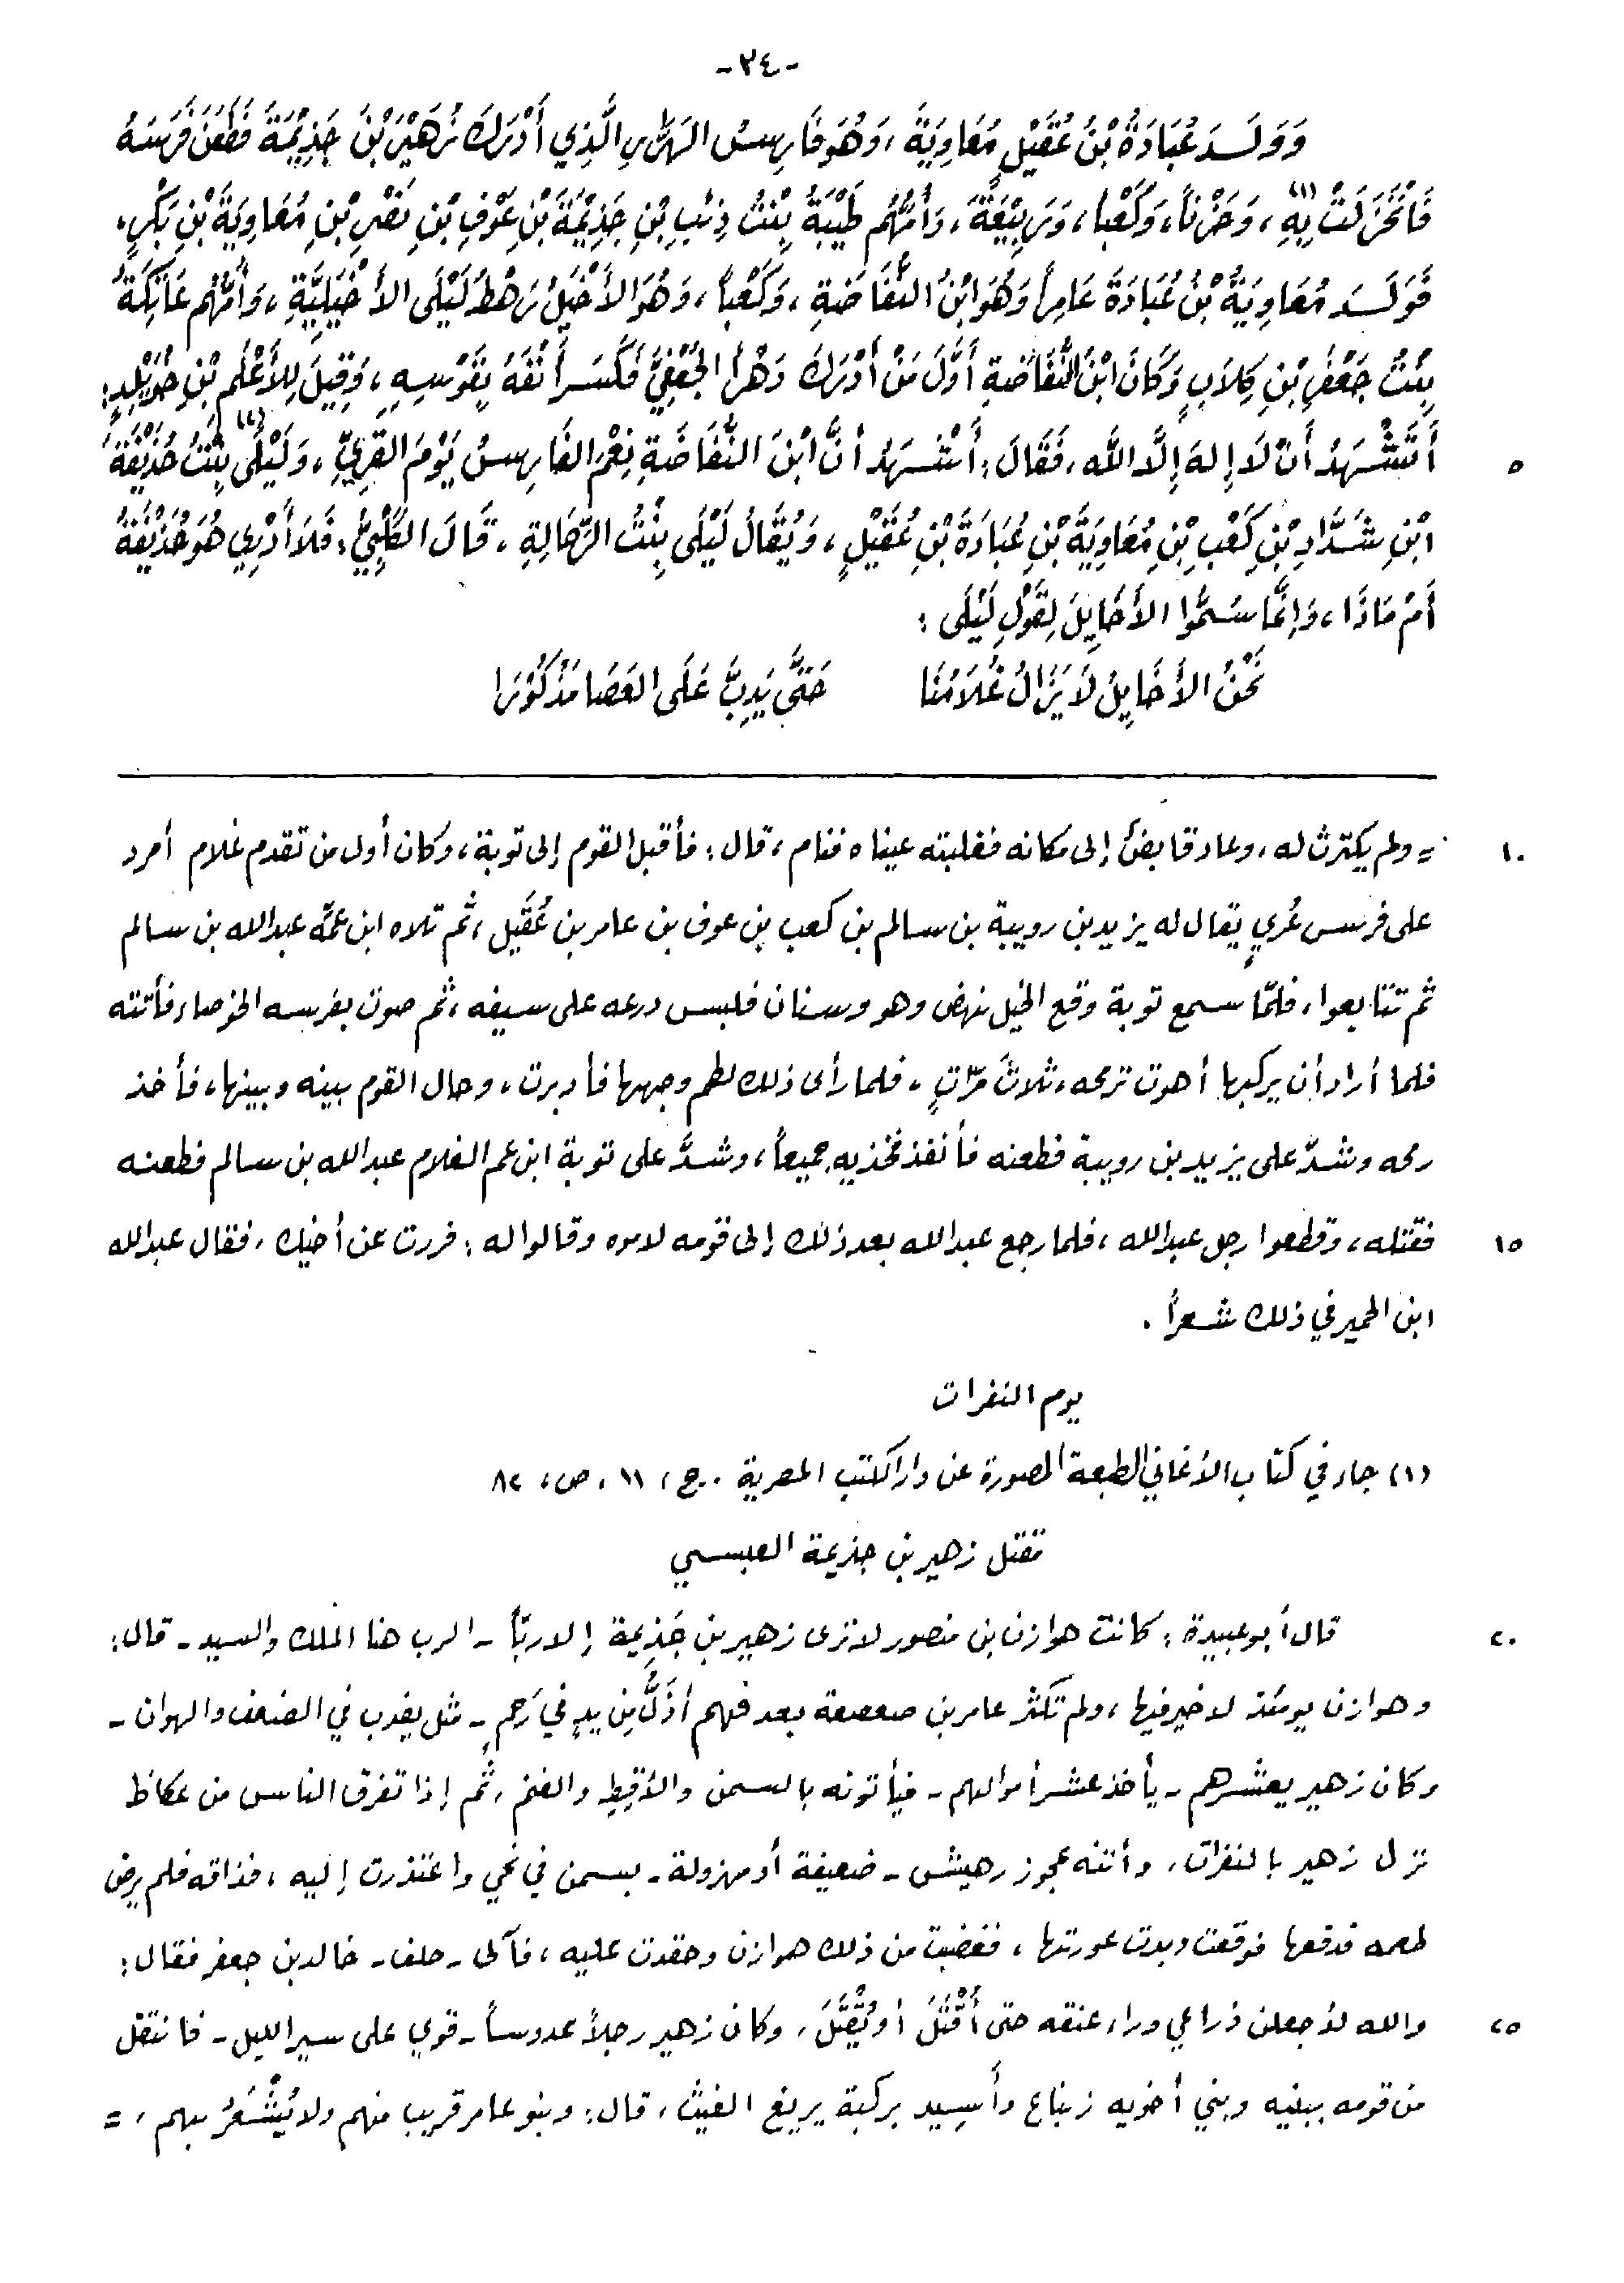 -٣٤-
وَوَلَسدَ عُبَادَةُ بْنُ عُقَيْلٍ مُعَاوِيَةَ، وَهُوَ فَارِسُ الهَرَّارِ الَّذِي أَدْرَكَ زُهَيْرَ بْنَ جَذِيْمَةَ فَطَعَنَ فَرَسَهُ
فَانْخَزَلَتْ بِهِ(١)، وَحَزْناً، وَكَعْباً، وَرَبِيْعَةَ، وَأُمُّهُم طَيْبَةُ بِنْتُ ذِئْبِ بْنِ جَذِيْمَةَ بْنِ عَوْفِ بْنِ نَصْرِ بْنِ مُعَاوِيَةَ بْنِ بَكْرٍ،
فَوَلَسدَ مُعَاوِيَةُ بْنُ عُبَادَةَ عَامِراً وَهُوَ ابْنُ النُّفَاضَةِ، وَكَعْباً، وَهُوَ الأَخْيَلُ رَهْطُ لَيْلَى الأَخْيَلِيَّةِ، وَأُمُّهُم عَاتِكَةُ
بِنْتُ جَعْفَرِ بْنِ كِلاَبٍ وَكَانَ ابْنُ النُّفَاضَةِ أَوَّلَ مَنْ أَدْرَكَ وَهْراً الجُعْفِيَّ فَكَسَرَ أَنْفَهُ بِقَوْسِهِ، وَقِيلَ لِلأَعْلَمِ بْنِ خُوَيْلِدٍ:
أَتَشْهَدُ أَنْ لاَ إِلهَ إِلَّا اللَّه، فَقَالَ: أَشْهَدُ أنَّ ابْنَ النُّفَاضَةِ نِعْمَ الفَارِسُ يَوْمَ القَرِيِّ، وَلَيْلَى(٢) بِنْتُ حُذَيْفَةَ
ابْنِ شَدَّادِ بْنِ كَعْبِ بْنِ مُعَاوِيَةَ بْنِ عُبَادَةَ بْنِ عُقَيْلٍ، وَيُقَالُ لَيْلَى بِنْتُ الرَّحَالَةِ، قَالَ الكَلْبِيُّ: فَلاَ أَدْرِي هُوَ حُذَيْفَةُ
أَمْ مَاذَا، وَإِنَّمَا سُمُّوا الأَخَايِلَ لِقَوْلِ لَيْلَى:
نَحْنُ الأَخَايِلُ لاَ يَزَالُ غُلاَمُنَا حَتَّى يَدِبَّ عَلَى العَصَا مَذْكُوْرَا
= ولم يكترث له، وعاد قابضُ إلى مكانه فغلبته عيناه فنام، قال: فأقبل القوم إلى توبة، وكان أول من تقدم غلام أمرد
على فرس عُريٍ يقال له يزيد بن رويبة بن سالم بن كعب بن عوف بن عامر بن عُقَيل، ثم تلاه ابن عمّه عبدالله بن سالم
ثم تتابعوا، فلمّا سمع توبة وقع الخيل نهض وهو وسنان فلبس درعه على سيفه، ثم صوت بفرسه الخوصاء فأتته
فلما أراد أن يركبها أهوت ترمحه، ثلاثَ مرّاتٍ، فلما رأى ذلك لطم وجهها فأدبرت، وحال القوم بينه وبينها، فأخذ
رمحه وشدَّ على يزيد بن رويبة فطعنه فأنفذ فخذيه جميعاً، وشدَّ على توبة ابن عم الغلام عبدالله بن سالم فطعنه
فقتله، وقطعوا رجل عبدالله، فلما رجع عبدالله بعد ذلك إلى قومه لاموه وقالوا له: فررت عن أخيك، فقال عبدالله
ابن الحمير في ذلك شعراً.
يوم النفرات
(١) جاء في كتاب الأغاني الطبعة المصورة عن دار الكتب المصرية. ج، ١١، ص، ٨٢
مقتل زهير بن جذيمة العبسي
قال أبو عبيدة: كانت هوازن بن منصور لا ترى زهير بن جَذِيمة إلا ربّاً - الرب هنا الملك والسيد - قال:
وهوازن يومئذ لا خير فيها، ولم تكثر عامر بن صعصعة بعد فهم أذَلُّ مِن يدٍ في رَحمٍ - مثل يضرب في الضعف والهوان -
وكان زهير يعشرهم - يأخذ عشر أموالهم - فيأتونه بالسمن والأقِطِ والغنم، ثُم إذا تفرق الناس من عكاظ
نزل زهير بالنفرات، وأتته عجوز رهيش - ضعيفة أو مهزولة - بسمن في نحي واعتذرت إليه، فذاقه فلم يرض
طعمه فدفعها فوقعت وبدت عورتها، فغضبت من ذلك هوازن وحقدت عليه، فآلى - حلف - خالد بن جعفر فقال:
والله لأجعلن ذراعي وراء عنقه حتى أُقْتَلَ أو يُقْتَلَ، وكان زهير رجلاً عدوساً - قوي على سير الليل - فانتقل
من قومه ببنيه وبني أخويه زنباع وأَسِيد بركبة يريغ الغيث، قال: وبنو عامر قريب منهم ولا يُشْعَرُ بهم، =
٥
١٠
١٥
٢٠
٢٥